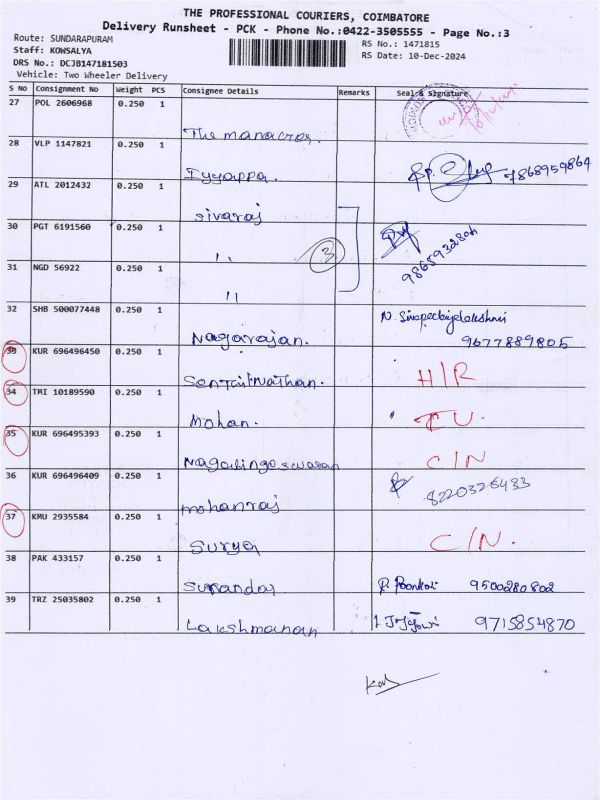 THE PROFESSIONAL COURIERS, COIMBATORE
Delivery Runsheet - PCK - Phone No.:0422-3505555 - Page No.:3
Route: SUNDARAPURAM RS No.: 1471815
Staff: KOWSALYA RS Date: 10-Dec-2024
DRS No.: DCJB147181503
Vehicle: Two Wheeler Delivery
S No Consignment No Weight PCS Consignee Details Remarks Seal & Signature
27 POL 2606968 0.250 1
The manager.
28 VLP 1147821 0.250 1
Iyyappa. 7868959864
29 ATL 2012432 0.250 1
sivaraj
30 PGT 6191560 0.250 1
" 3 9865932804
31 NGD 56922 0.250 1
"
32 SHB 500077448 0.250 1
Nagarajan. 9677889805
33 KUR 696496450 0.250 1
H/R
34 TMI 10189590 0.250 1
Mohan.
35 KUR 696495393 0.250 1
C/N
36 KUR 696496409 0.250 1
mohanraj 8220326433
37 KMU 2935584 0.250 1
Surya C/N.
38 PAK 433157 0.250 1
9500280802
39 TRZ 25035802 0.250 1
Lakshmanan 9715854870